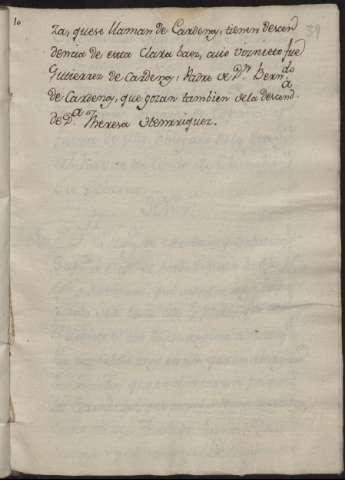 10
39
za, que se llaman de Cardenas, tienen descen
dencia de esta Clara baez, cuio visnieto fue
Gutierrez de Cardenas, Padre de Dn Berndo
de Cardenas, que gozan tambien de la descenda
de Da. Theresa Henrriquez.